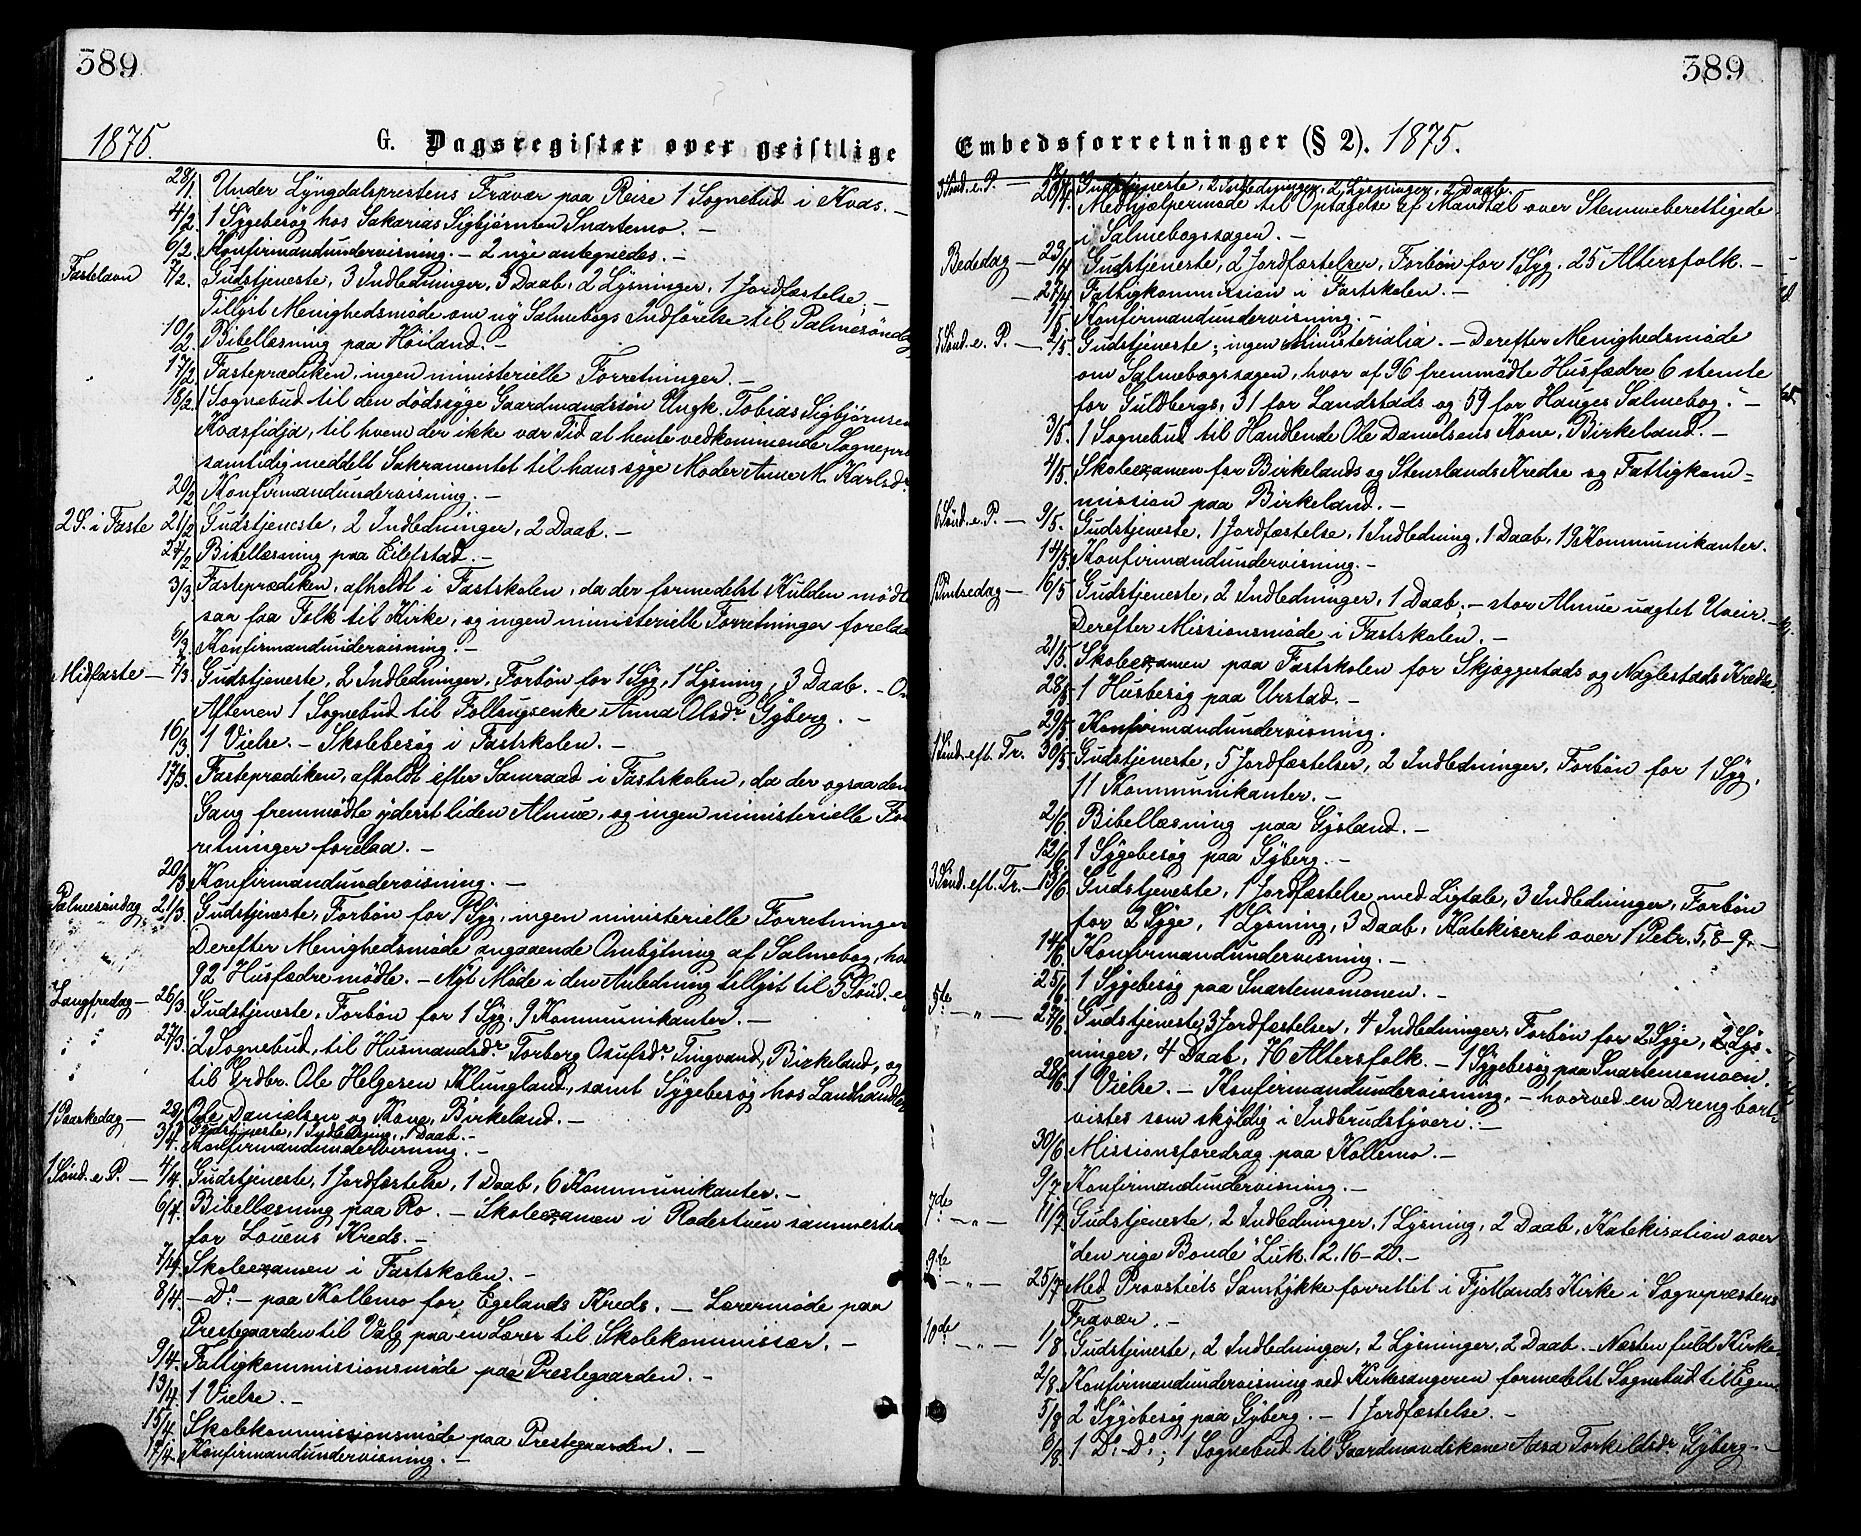 389
1875.
G. Dagsregister over geistlige
28/1 Under Lyngdalsprestens Fravær paa Reise 1 Sognebud i Kvas. –
4/2 1 Sygebesøg hos Sakarias Sigbjørnsen Snartemo. –
6/2 Konfirmandundervisning. – 2 nye antegnedes. –
Fastelavn 7/2. Gudstjeneste, 3 Indledninger, 3 Daab, 2 Lysninger, 1 Jordfæstelse. –
Tillyst Menighedsmøde om ny Salmebogs Indførelse til Palmesøndag
10/2 Bibellæsning paa Høiland. –
17/2 Fasteprædiken, ingen ministerielle Forretninger. –
18/2. 1 Sognebud til den dødssyge Gaardmandssøn Ungk. Tobias Sigbjørnsen
Kvasfidja, til hvem der ikke var Tid at hente vedkommende Sognepr
samtidig meddelt Sakramentet til hans syge Moder Anne M. Karlsdr
20/2 Konfirmandundervisning. –
2 S. i Faste 21/2 Gudstjeneste, 2 Indledninger, 2 Daab. –
24/2 Bibellæsning paa Eilelstad. –
3/3 Fasteprædiken, afholdt i Fastskolen, da der formedelst Kulden mødte
saa faa Folk til Kirke, og ingen ministerielle Forretninger forelaa
6/3 Konfirmandundervisning. –
Midfaste – 7/3 Gudstjeneste, 2 Indledninger, Forbøn for 1 Syg, 1 Lysning, 3 Daab. – Om
Aftenen 1 Sognebud til Follaugsenke Anna Olsdr Gyberg. –
16/3 1 Vielse. – Skolebesøg i Fastskolen. –
17/3. Fasteprædiken, afholdt efter Samraad i Fastskolen, da der ogsaa den
Gang fremmødte yderst liden Almue, og ingen ministerielle For
retninger forelaa. –
20/3 Konfirmandundervisning. –
Palmesøndag 21/3. Gudstjeneste, Forbøn for 1 Syg, ingen ministerielle Forretninger
Derefter Menighedsmøde angaaende Ombytning af Salmebog, hvor
92 Husfædre mødte. – Nyt Møde i den Anledning tillyst til 5 Sønd. e
Langfredag – 26/3 Gudstjeneste, Forbøn for 1 Syg. 9 Kommunikanter. –
27/3. 2 Sognebud, til Husmandsdr Torberg Osufsdr Tingvand, Birkeland, og
til Grdbr. Ole Helgesen Klungland, samt Sygebesøg hos Landhandler
Ole Danielsen og Kone, Birkeland. –
1 Paaskedag – 28/3 Gudstjeneste, 1 Indledning, 1 Daab. –
3/4. Konfirmandundervisning. –
1 Sønd. e P. – 4/4. Gudstjeneste, 1 Jordfæstelse, 1 Daab, 6 Kommunikanter. –
6/4. Bibellæsning paa Ro. – Skoleexamen i Rodestuen sammesteds
for Louens Kreds. –
7/4. Skoleexamen i Fastskolen. –
8/4. – Do – paa Kollemo for Egelands Kreds. – Lærermøde paa
Prestegaarden til Valg paa en Lærer til Skolekommissær. –
9/4. Fattigkommissionsmøde paa Prestegaarden. –
13/4. 1 Vielse. –
15/4. Skolekommissionsmøde paa Prestegaarden. –
17/4. Konfirmandundervisning. –
389
Embedsforretninger (§ 2). 1875.
3 Sønd. e. P. – 18/4 Gudstjeneste, 2 Indledninger, 2 Lysninger, 2 Daab.
20/4. Medhjælpermøde til Optagelse af Mandtal over Stemmeberettigede
i Salmebogssagen. –
Bededag – 23/4 Gudstjeneste, 2 Jordfæstelser, Forbøn for 1 Syg. 25 Altersfolk. –
– 27/4 Fattigkommission i Fastskolen. –
1/5 Konfirmandundervisning. –
5 Sønd. e. P. – 2/5. Gudstjeneste; ingen Ministerialia. – Derefter Menighedsmøde
om Salmebogssagen, hvor af 96 fremmødte Husfædre 6 stemte
for Guldbergs, 31 for Landstads og 59 for Hauges Salmebog. –
3/5. 1 Sognebud til Handlende Ole Danielsens Kone, Birkeland. –
4/5. Skoleexamen for Birkelands og Stenslands Kredse og Fattigkom=
mission paa Birkeland. –
6 Sønd. e. P. – 9/5. Gudstjeneste, 1 Jordfæstelse, 1 Indledning, 1 Daab, 19 Kommunikanter.
14/5. Konfirmandundervisning. –
1 Pintsedag – 16/5 Gudstjeneste, 2 Indledninger, 1 Daab. – stor Almue uagtet Uveir. –
Derefter Missionsmøde i Fastskolen. –
21/5. Skoleexamen paa Fastskolen for Skjæggestads og Naglestads Kredse
28/5. 1 Husbesøg paa Urstad. –
29/5 Konfirmandundervisning.
1 Sønd. eft. Tr. 30/5 Gudstjeneste, 5 Jordfæstelser, 2 Indledninger, Forbøn for 1 Syg,
11 Kommunikanter. –
2/6. Bibellæsning paa Gysland. –
12/6. 1 Sygebesøg paa Gyberg. –
3 Sønd. eft. Tr. – 13/6 Gudstjeneste, 1 Jordfæstelse med Ligtale, 3 Indledninger, Forbøn
for 2 Syge, 1 Lysning, 3 Daab, Katekiseret over 1 Petr. 5, 8–9. –
14/6. Konfirmandundervisning. –
25/6. 1 Sygebesøg paa Snartemomonen. –
5te – „ – 27/6 Gudstjeneste, 3 Jordfæstelser, 4 Indledninger, Forbøn for 2 Syge, 2 Lys=
ninger, 4 Daab, 76 Altersfolk. – 1 Sygebesøg paa Snartemomoen.
28/6. 1 Vielse. – Konfirmandundervisning, – hvorved en Dreng bort
vistes som skyldig i Indbrudstyveri. –
30/6 Missionsforedrag paa Kollemo. –
9/7 Konfirmandundervisning. –
7de – „ – 11/7 Gudstjeneste, 2 Indledninger, 1 Lysning, 2 Daab, Katekisation over
"den rige Bonde" Luk. 12. 16–20. –
9de – „ – 25/7 Med Provstiets Samtykke forrettet i Fjotlands Kirke i Sogneprestens
Fravær. –
10de – „ – 1/8 Gudstjeneste, 2 Indledninger, 2 Lysninger, 2 Daab. – Næsten fuld Kirke.
2/8. Konfirmandundervisning ved Kirkesangeren formedelst Sognebud til Egen
5/8 2 Sygebesøg paa Gyberg. – 1 Jordfæstelse. –
6/8. 1 Do Do; 1 Sognebud til Gaardmandskone Aasa Torkildsdr Gyberg. –